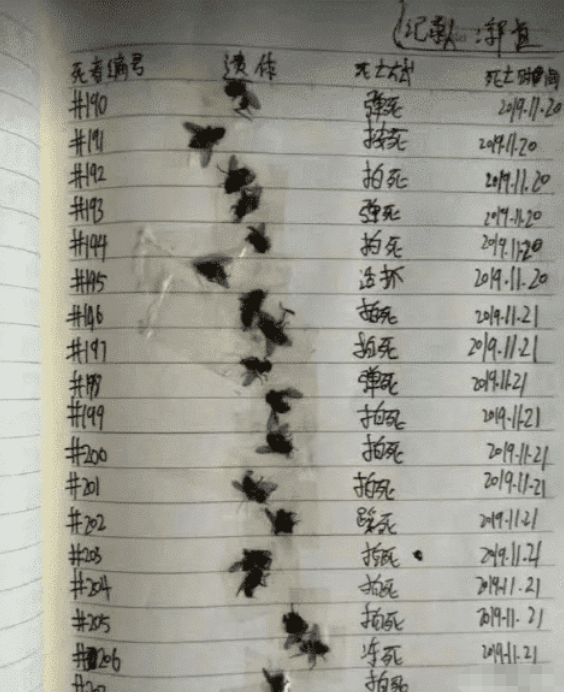 记录人:郭
死者编号 遗体 死亡方式 死亡时间
#190 弹死 2019.11.20
#191 按死 2019.11.20
#192 拍死 2019.11.20
#193 弹死 2019.11.20
#194 拍死 2019.11.20
#195 活抓 2019.11.20
#196 拍死 2019.11.21
#197 拍死 2019.11.21
#198 弹死 2019.11.21
#199 拍死 2019.11.21
#200 拍死 2019.11.21
#201 拍死 2019.11.21
#202 踩死 2019.11.21
#203 拍死 2019.11.21
#204 拍死 2019.11.21
#205 拍死 2019.11.21
#206 冻死 2019.11.21
#207 拍死